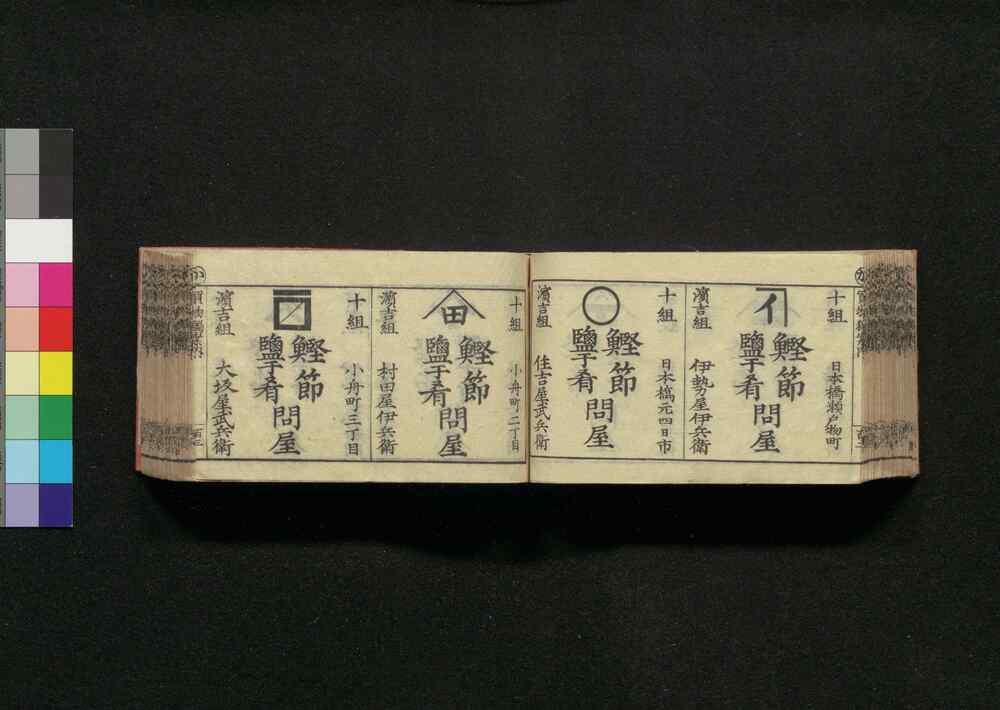 十組
日本橋瀬戸物町
イ
鰹節
鹽干肴
問屋
濱吉組
伊勢屋伊兵衛
十組
日本橋元四日市
鰹節
鹽干肴
問屋
濱吉組
住吉屋武兵衛
十組
小舟町二丁目
田
鰹節
鹽干肴
問屋
濱吉組
村田屋伊兵衛
十組
小舟町三丁目
鰹節
鹽干肴
問屋
濱吉組
大坂屋武兵衛